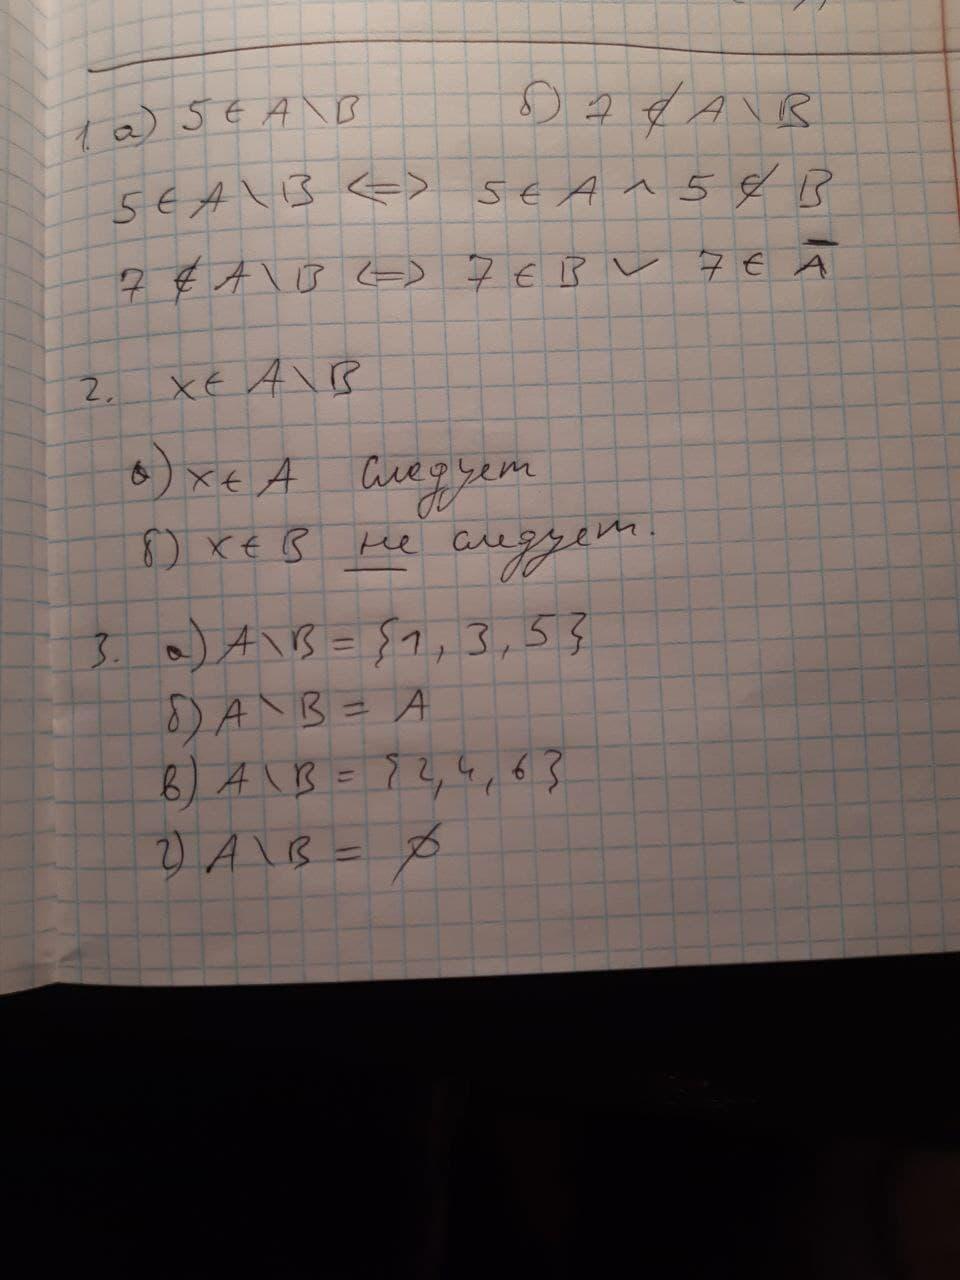 1. а) 5 ∈ A \ B б) 7 ∉ A \ B
5 ∈ A \ B <=> 5 ∈ A ^ 5 ∉ B
7 ∉ A \ B <=> 7 ∈ B ∨ 7 ∈ A̅
2. x ∈ A \ B
а) x ∈ A следует
б) x ∈ B не следует.
3. а) A \ B = {1, 3, 5}
б) A \ B = A
в) A \ B = {2, 4, 6}
г) A \ B = ∅